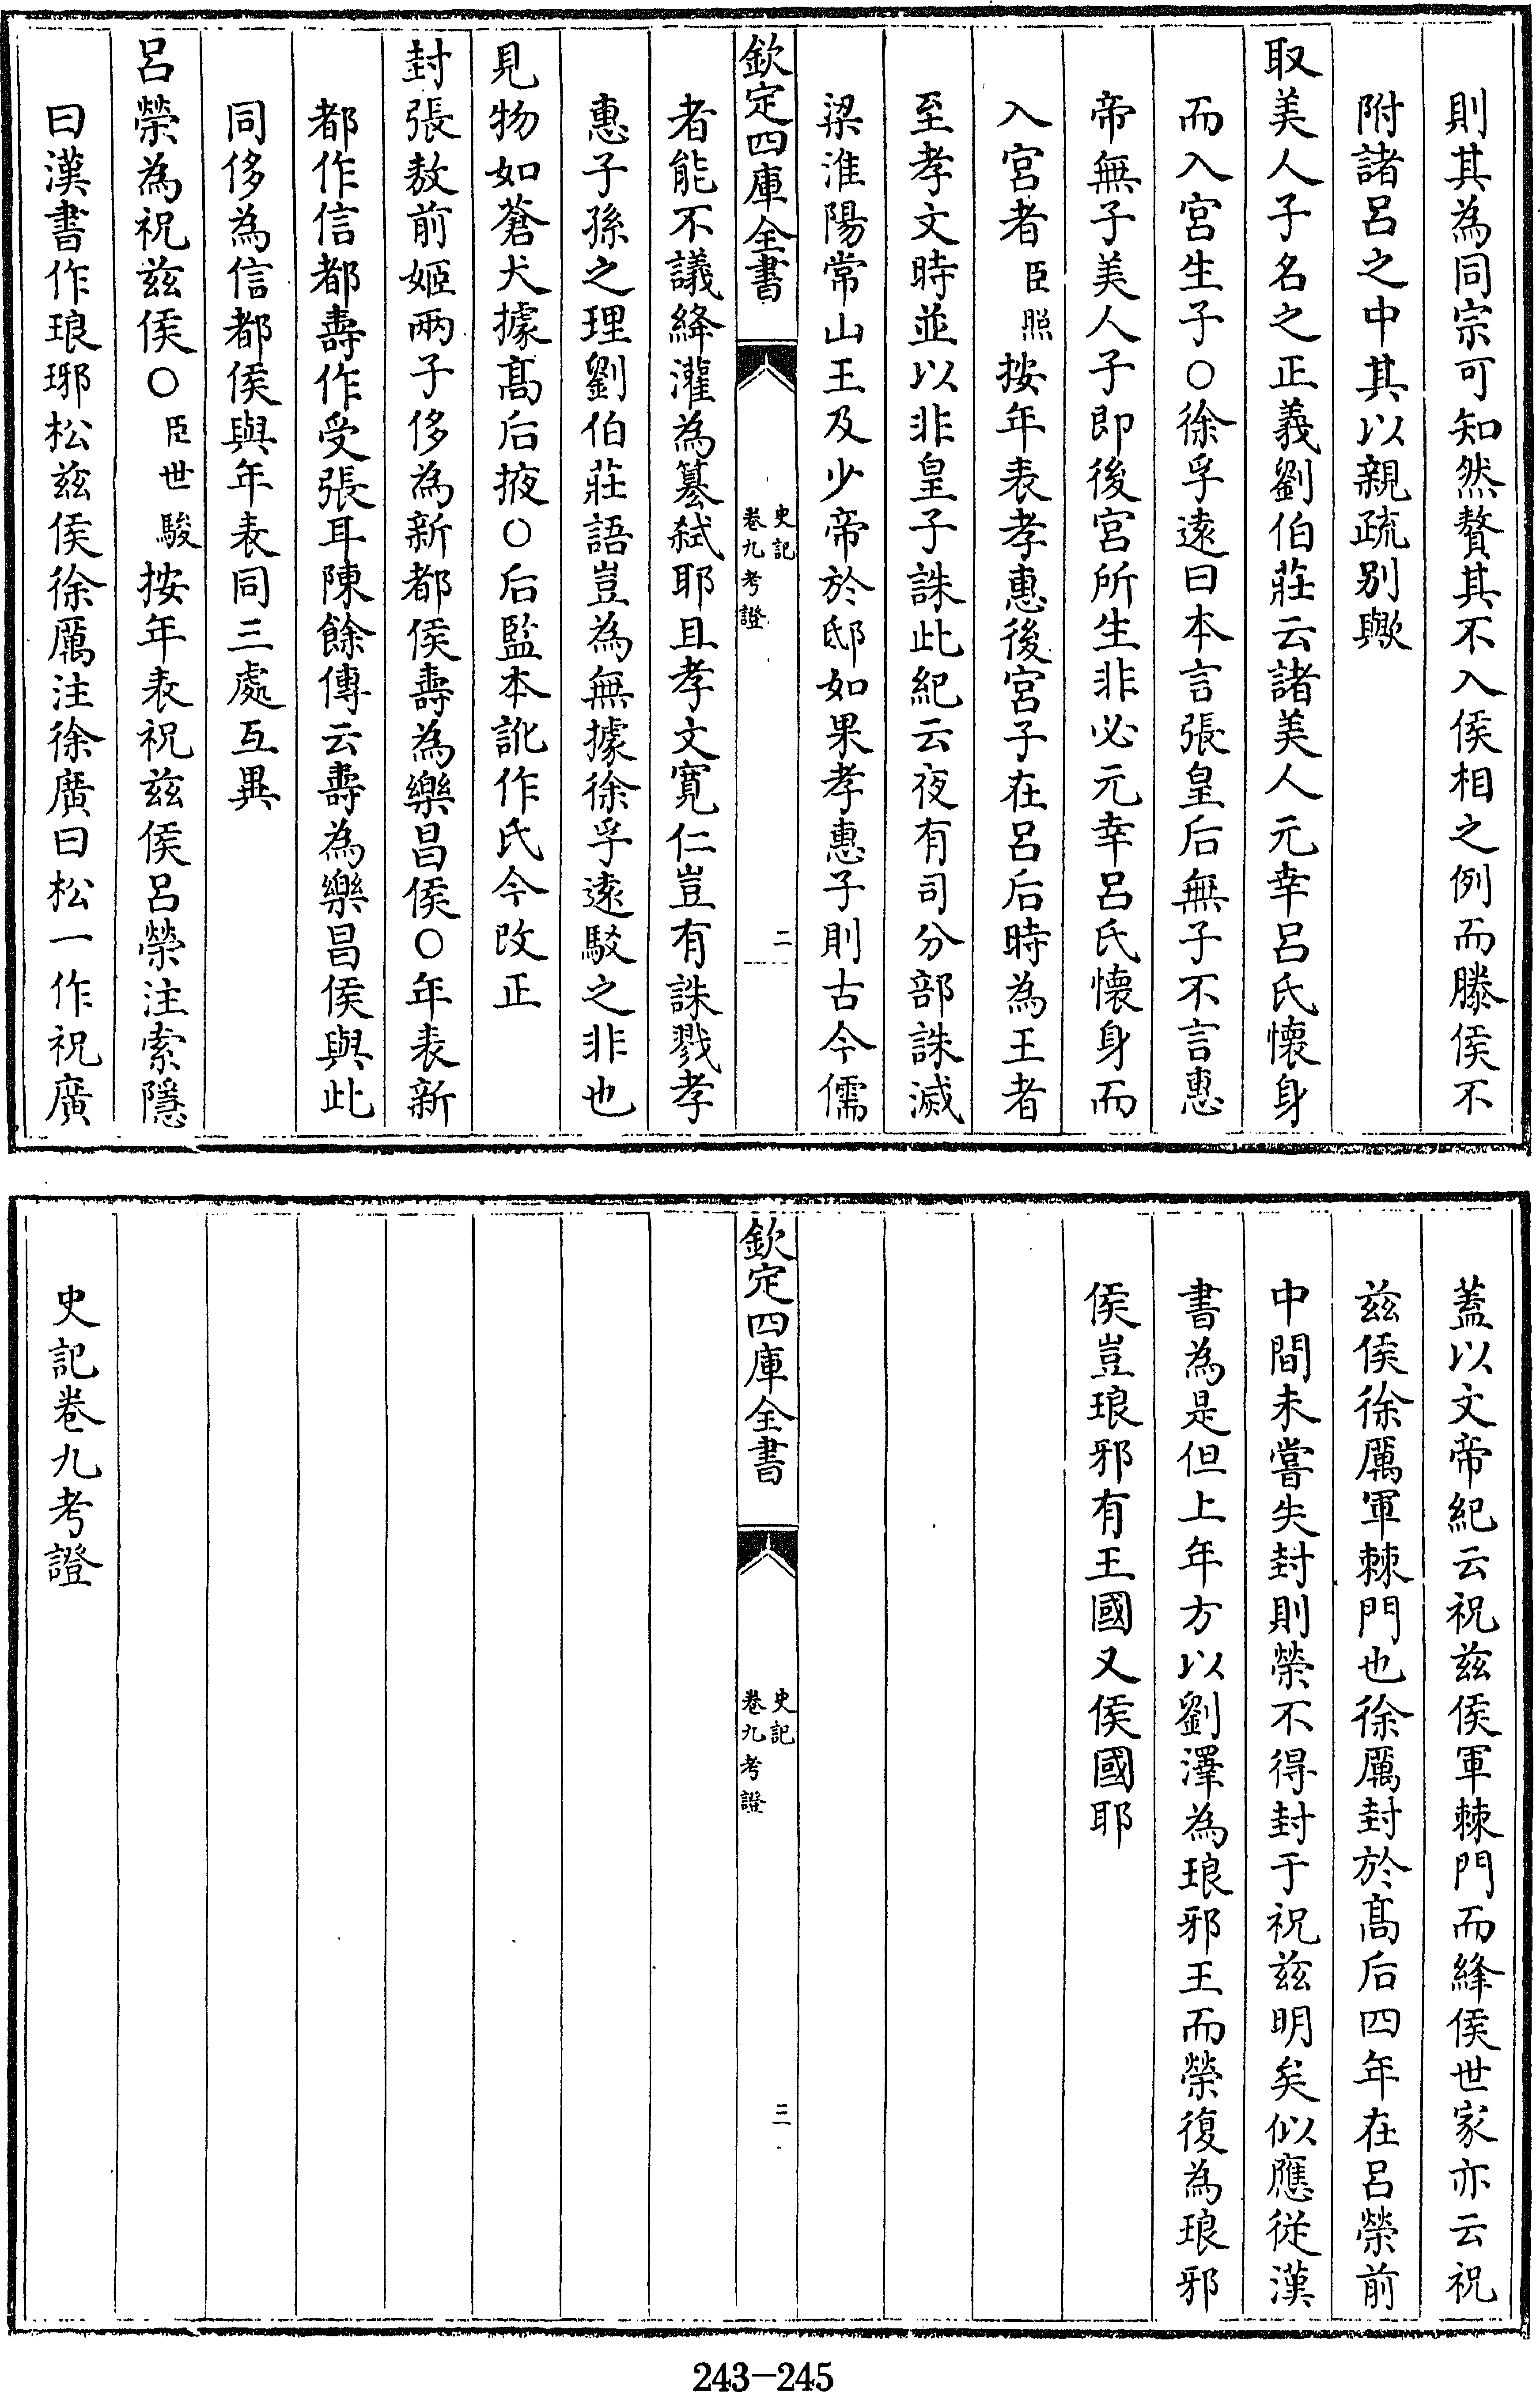 則其為同宗可知然贅其不入侯相之例而滕侯不
附諸呂之中其以親疏别歟
取美人子名之正義劉伯莊云諸美人元幸呂氏懷身
而入宫生子○徐孚遠曰本言張皇后無子不言惠
帝無子美人子即後宫所生非必元幸呂氏懷身而
入宫者臣照按年表孝惠後宫子在呂后時為王者
至孝文時並以非皇子誅此紀云夜有司分部誅滅
梁淮陽常山王及少帝於邸如果孝惠子則古今儒
欽定四庫全書
史記
卷九考證
二
者能不議絳灌為簒弑耶且孝文寛仁豈有誅戮孝
惠子孫之理劉伯莊語豈為無據徐孚遠駁之非也
見物如蒼犬據髙后掖○后監本訛作氏今改正
封張敖前姬兩子侈為新都侯壽為樂昌侯○年表新
都作信都壽作受張耳陳餘傳云壽為樂昌侯與此
同侈為信都侯與年表同三處互異
呂榮為祝兹侯○臣世駿按年表祝兹侯呂榮注索隱
曰漢書作琅琊松兹侯徐厲注徐廣曰松一作祝廣
蓋以文帝紀云祝兹侯軍棘門而絳侯世家亦云祝
兹侯徐厲軍棘門也徐厲封於髙后四年在呂榮前
中間未嘗失封則榮不得封于祝兹明矣似應從漢
書為是但上年方以劉澤為琅邪王而榮復為琅邪
侯豈琅邪有王國又侯國耶
欽定四庫全書
史記
卷九考證
三
史記卷九考證
243-245